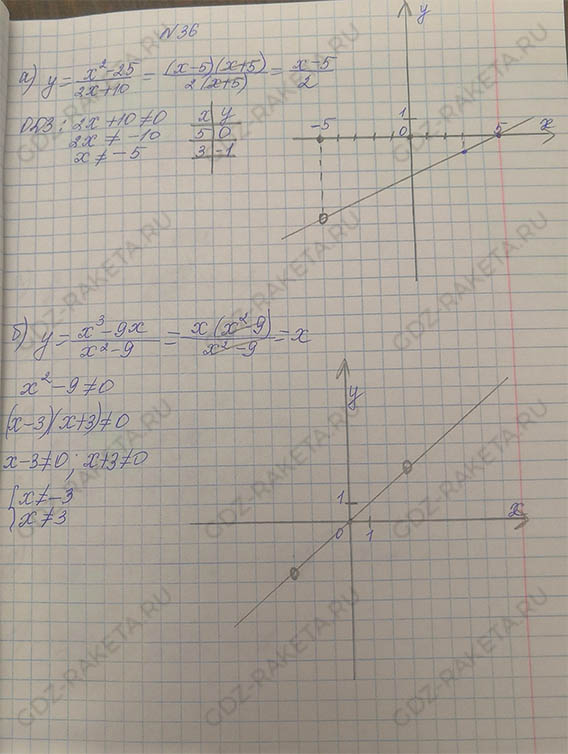 N36
а) y = x²-25 / 2x+10 = (x-5)(x+5) / 2(x+5) = x-5 / 2
ОДЗ: 2x+10≠0
2x ≠ -10
x ≠ -5
x | y
5 | 0
3 | -1
y
1
-5 0 5 x
б) y = x³-9x / x²-9 = x(x²-9) / x²-9 = x
x²-9≠0
(x-3)(x+3)≠0
x-3≠0; x+3≠0
{ x≠-3
x≠3
y
1
0 1 x
GDZ-RAKETA.RU